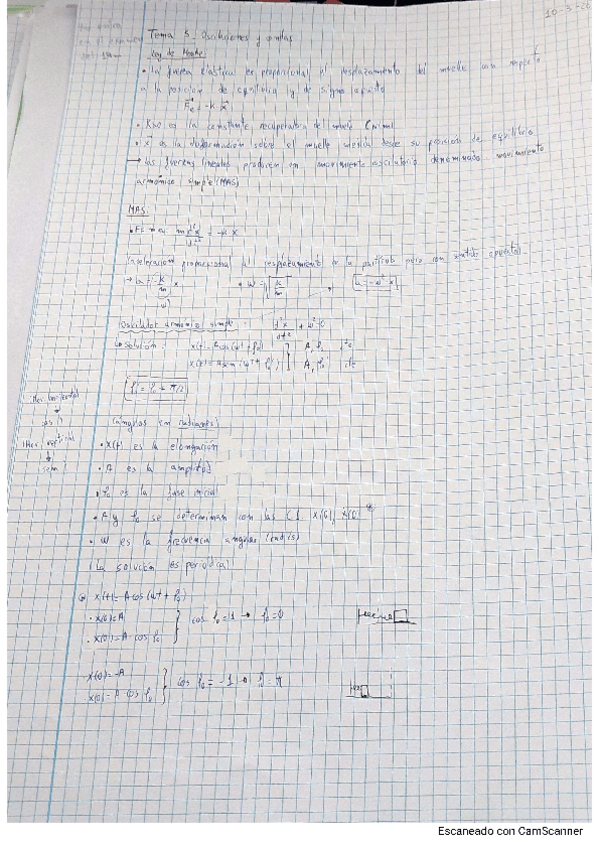 10-3-20
Tema 5. Oscilaciones y ondas
Ley de Hooke
• La fuerza elástica es proporcional al desplazamiento del muelle con respecto
a la posición de equilibrio y de signo opuesto
Fe = -k x
• K>0 es la constante recuperadora del muelle (N/m)
• x es la deformación sobre el muelle medida desde su posición de equilibrio
→ Las fuerzas lineales producen un movimiento oscilatorio denominado movimiento
armónico simple (MAS)
MAS:
• F = m a; m d²x/dt² = -k x
(aceleración proporcional al desplazamiento de la partícula pero con sentido opuesto)
→ a = -k/m x
• ω = √k/m
a = -ω² x
Oscilador armónico simple:
↳ solución:
φ0' = φ0 + π/2
(ángulos en radianes)
• x(t) es la elongación
• A es la amplitud
• φ0 es la fase inicial
• A y φ0 se determinan con las C.I. x(0),
• ω es la frecuencia angular (rad/s)
La solución es periódica
x(t) = A cos (ωt + φ0)
• x(0) = A
• x(0) = A · cos φ0
cos φ0 = 1 → φ0 = 0
x(0) = -A
x(0) = A · cos φ0
cos φ0 = -1 → φ0 = π
Escaneado con CamScanner